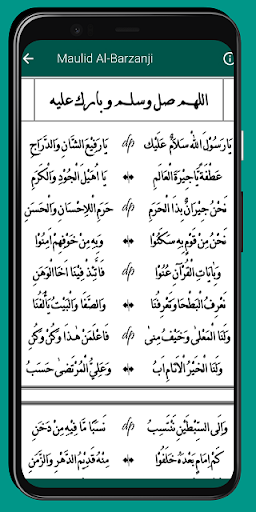 Maulid Al-Barzanji
اللهم صل وسلم وبارك عليه
يَارَسُوْلَ اللهِ سَلاَمٌ عَلَيْكَ يَارَفِيْعَ الشَّانِ وَالدَّرَجِ
عَطْفَةً يَّاجِيْرَةَ الْعَالَمِ يَا اُهَيْلَ الْجُوْدِ وَالْكَرَمِ
نَحْنُ جِيْرَانٌ بِذَا الْحَرَمِ حَرَمِ اْلاِحْسَانِ وَالْحَسَنِ
نَحْنُ مِنْ قَوْمٍ بِهِ سَكَنُوْا وَبِهِ مِنْ خَوْفِهِمْ اَمِنُوْا
وَبِاٰيَاتِ الْقُرْاٰنِ عُنُوْا فَاتَّئِدْ فِيْنَا اَخَا الْوَهَنِ
نَعْرِفُ الْبَطْحَا وَتَعْرِفُنَا وَالصَّفَا وَالْبَيْتُ يَأْلَفُنَا
وَلَنَا الْمَعْلَى وَخَيْفُ مِنٰى فَاعْلَمَنْ هٰذَا وَكُنْ وَكُنِ
وَلَنَا الْخَيْرُ اْلاَنَامِ اَبُ وَعَلِيُّ الْمُرْتَضٰى حَسَبُ
وَاِلَى السِّبْطَيْنِ نَنْتَسِبُ نَسَبًا مَّا فِيْهِ مِنْ دَخَنِ
كَمْ اِمَامٍ بَعْدَهُ خَلَفُوْا مِنْهُ قَدِيْمِ الدَّهْرِ وَالزَّمَنِ